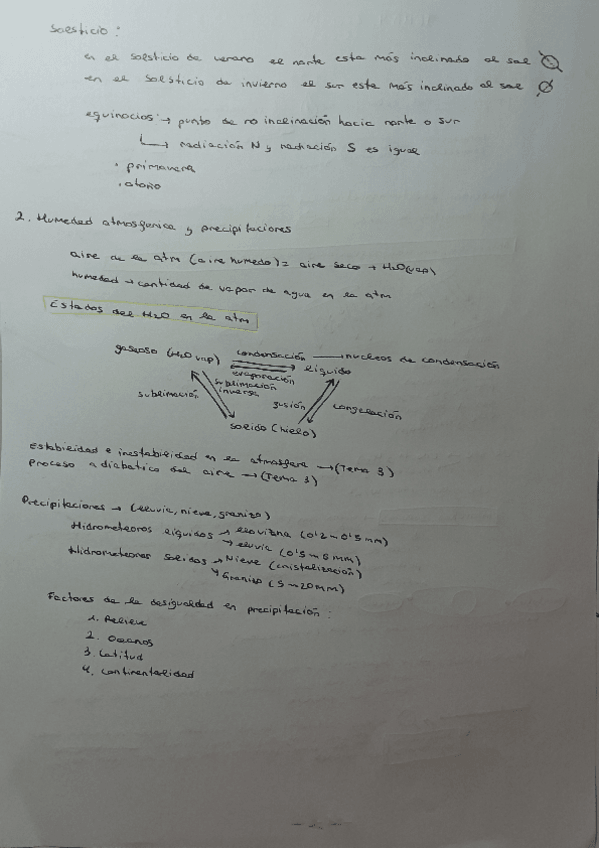 Solsticio:
en el solsticio de verano el norte esta más inclinado al sol
en el solsticio de invierno el sur esta más inclinado al sol
equinocios → punto de no inclinación hacia norte o sur
→ radiación N y radiación S es igual
· primavera
· otoño
2. Humedad atmosferica y precipitaciones
aire de la atm (aire humedo) = aire seco + H2O(vap)
humedad → cantidad de vapor de agua en la atm
Estados del H2O en la atm
gaseoso (H2O vap) condensación → nucleos de condensación
evaporación líquido
sublimación sublimación inversa fusión congelación
solido (hielo)
Estabilidad e inestabilidad en la atmosfera → (Tema 3)
proceso adiabatico del aire → (Tema 3)
Precipitaciones → (lluvia, nieve, granizo)
Hidrometeoros líquidos → llovizna (0'2-0'5 mm)
→ lluvia (0'5-6 mm)
Hidrometeoros solidos → Nieve (cristalización)
→ Granizo (5-20mm)
Factores de la desigualdad en precipitación:
1. Relieve
2. Oceanos
3. Latitud
4. Continentalidad